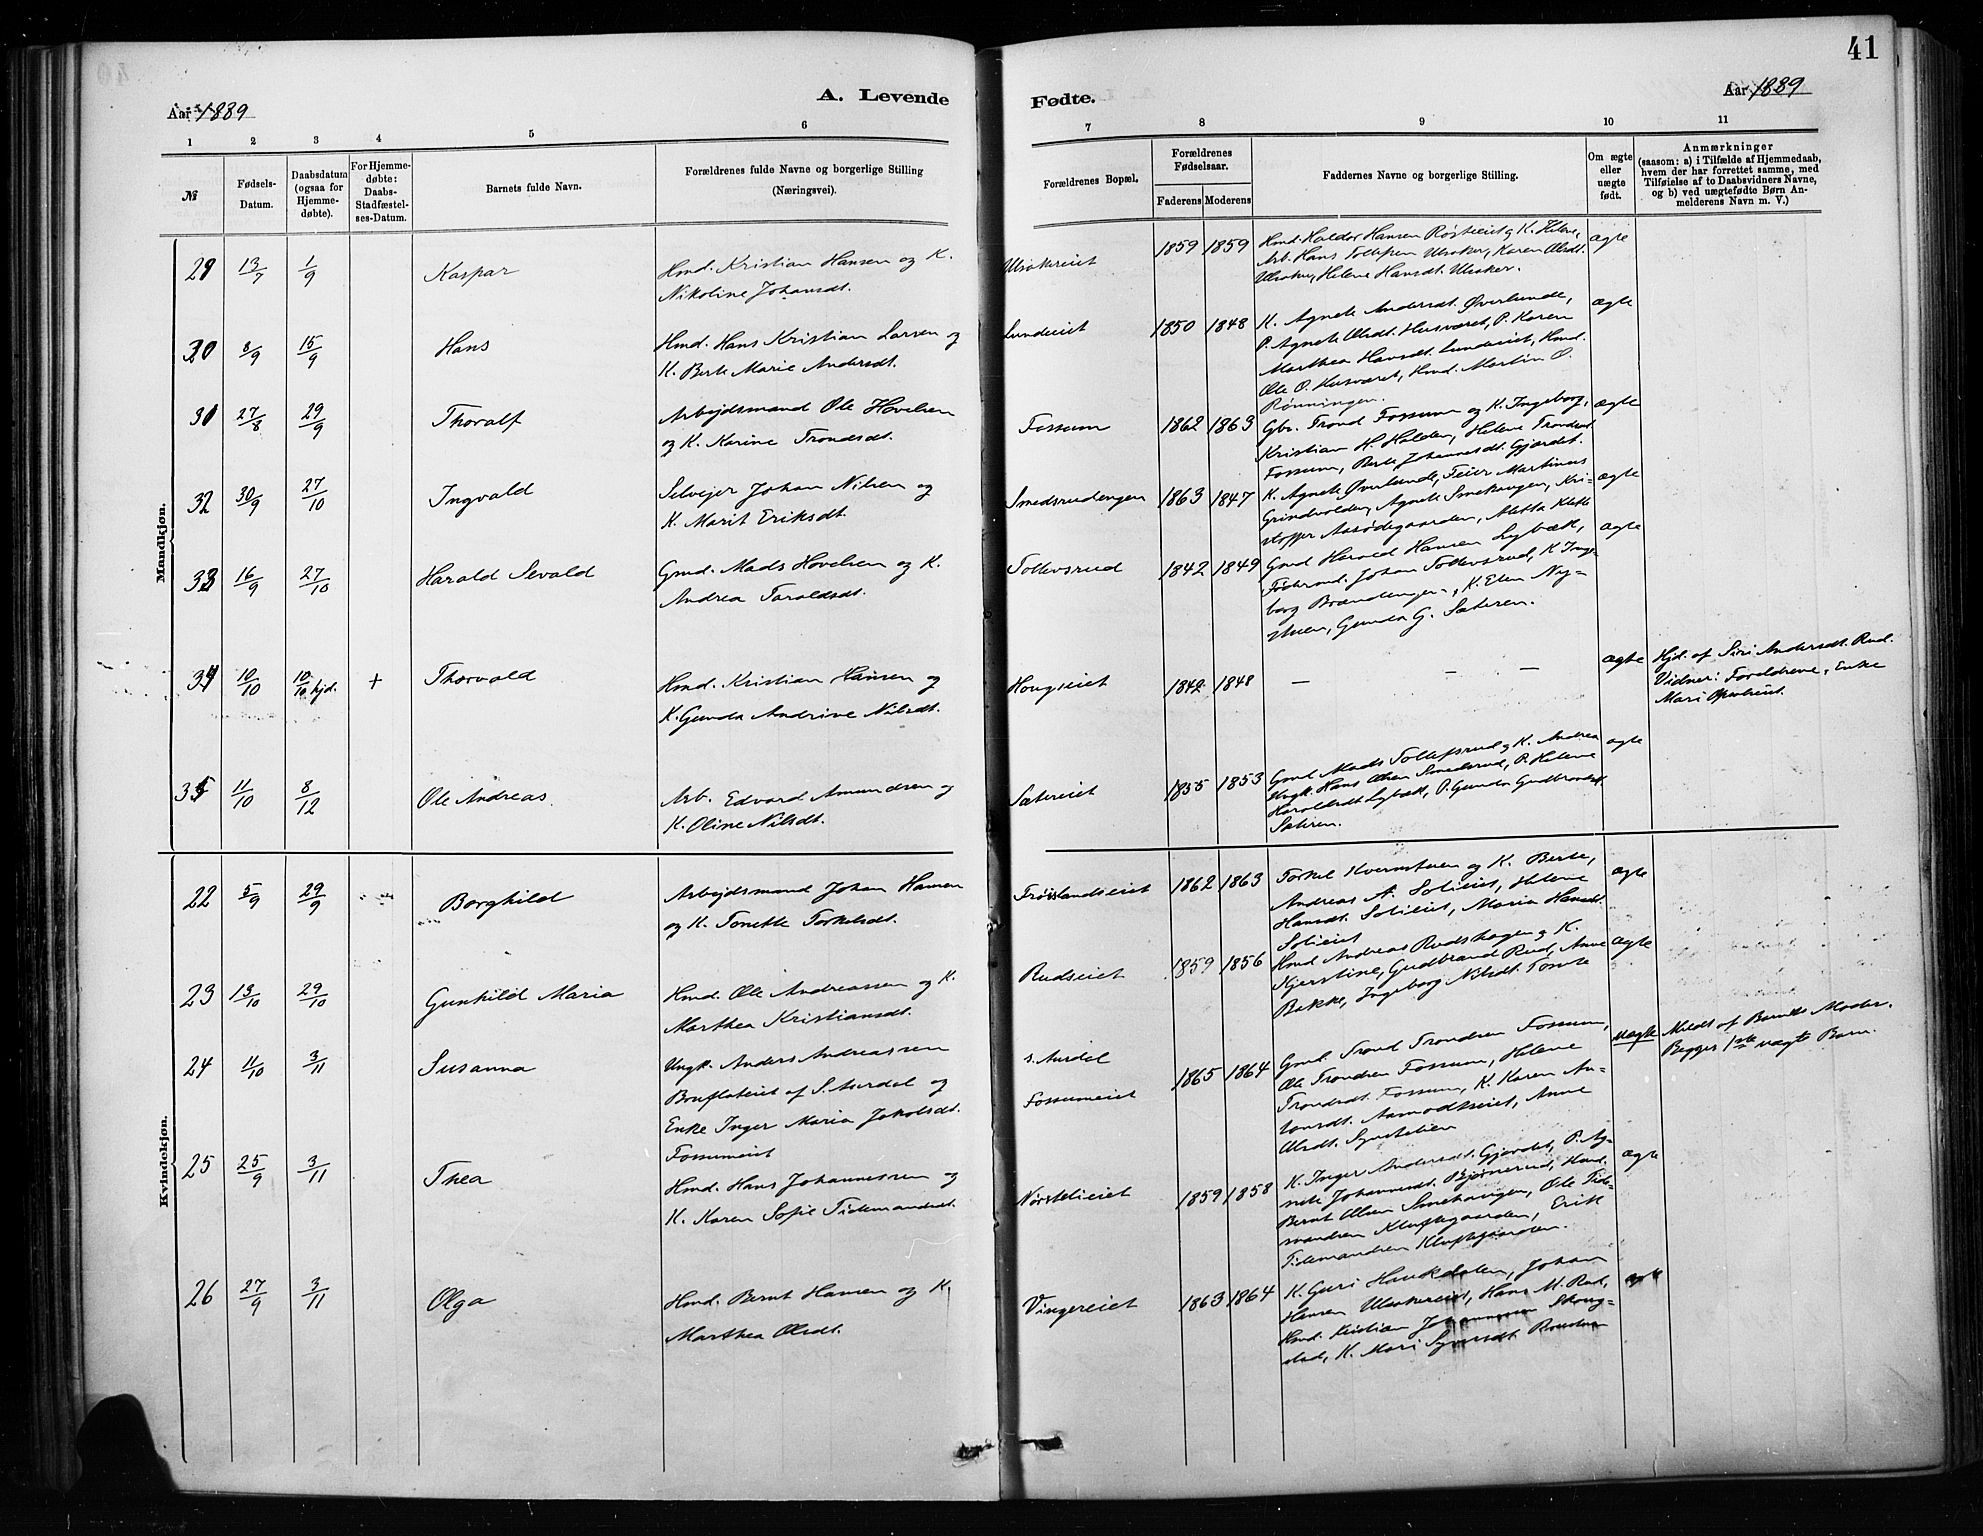 41
Aar 1889
A. Levende
Fødte.
Aar 1889
1 2 3 4 5 6 7 8 9 10 11
№
Fødsels-Datum.
Daabsdatum (ogsaa for Hjemmedøbte).
For Hjemmedøbte: Daabs-Stadfæstelses-Datum.
Barnets fulde Navn.
Forældrenes fulde Navne og borgerlige Stilling
(Næringsvei).
Forældrenes Bopæl.
Forældrenes Fødselsaar.
Faderens Moderens
Faddernes Navne og borgerlige Stilling.
Om ægte eller uægte født.
Anmærkninger
(saasom: a) i Tilfælde af Hjemmedaab, hvem der har forrettet samme, med Tilføielse af to Daabsvidners Navne, og b) ved uægtefødte Børn Anmelderens Navn m. V.)
Mandkjøn.
29 13/7 1/9 Kaspar Hmd. Kristian Hansen og K.
Nikoline Johansdt.
Ulsakereiet 1859 1859 Hmd. Haldor Hansen Røsteeiet og K. Helene,
Arb. Hans Tollefsen Ulsaker, Karen Olsdt.
Ulsaker, Helene Hansdt. Ulsaker.
ægte
30 8/9 15/9 Hans Hmd. Hans Kristian Larsen og
K. Berte Marie Andersdt.
Lundeiet 1850 1848 K. Agnete Andersdt. Øverlunde,
P. Agnete Olsdt. Husværet, P. Karen
Marthea Hansdt. Lundeiet, Hmd.
Ole O. Husværet, Hmd. Martin O.
Rønningen.
ægte
31 27/8 29/9 Thoralf Arbejdsmand Ole Hovelsen
og K. Karine Trondsdt.
Fossum 1862 1863 Gbr. Trond Fossum og K. Ingeborg,
Kristian H. Halden, Helene Trondsdt.
Fossum, Berte Johannesdt. Gjærdet.
ægte
32 30/9 27/10 Ingvald Selvejer Johan Nilsen og
K. Marit Eriksdt.
Smedsrudengen 1863 1847 K. Agnete Øverlunde, Feier Martinus
Grindvolden, Agnete Smehaugen, Kri-
stoffer Aasødegaarden, Mette Klette
ægte
33 16/9 27/10 Harald Sevald Gmd. Mads Hovelsen og K.
Andrea Taraldsdt.
Tollevsrud 1842 1849 Gmd Harald Hansen Lybæk,
Føderaad. Johan Tollevsrud, K. Inge-
borg Brændengen, K. Elen Ny-
stuen, Gunda G. Sæteren.
ægte
34 10/10 10/10 hjd. + Thorvald Hmd. Kristian Hansen og
K. Gunda Andrine Nilsdt.
Hougseiet 1842 1848 — — —
ægte Hjd. af Siri Andersdt. Rud.
Vidner: Forældrene, Enke
Mari
35 11/10 8/12 Ole Andreas. Arb. Edvard Amundsen og
K. Oline Nilsdt.
Sætereiet 1855 1853 Gmd Mads Tollefsrud og K. Andrea
Ungk. Hans Olsen Smedsrud, P. Helene
Haraldsdt Lybæk, P. Gunda Gudbrandsdt.
Sæteren.
ægte
Kvindekjøn.
22 5/9 29/9 Borghild Arbejdsmand Johan Hansen
og K. Tonette Torkelsdt.
Frøislandseiet 1862 1863 Torkel Kvernstuen og K. Berte,
Andreas A. Solieiet, Helene
Hansdt. Solieiet, Maria Hansdt.
Solieiet
ægte
23 13/10 29/10 Gunhild Maria Hmd. Ole Andreassen og K.
Marthea Kristiansdt.
Rudseiet 1859 1856 Hmd Andreas Rudshagen og K.
Kjerstine, Gudbrand Rud, Anne
Bakke, Ingeborg Nilsdt. Tømte
ægte
24 11/10 3/11 Susanna Ungk. Anders Andreassen
Bruflateiet af S. Aurdal og
Enke Inger Maria Jakobsdt.
Fossumeiet
S. Aurdal
Fossumeiet
1865 1864 Gmd. Trond Trondsen Fossum,
Ole Trondsen Fossum, Helene
Trondsdt. Fossum, K. Karen An-
tonsdt. Aamodtseiet, Anne
Olsdt. Synstelien
uægte Meldt af Barnets Moder.
Begges 1ste uægte Barn.
25 25/9 3/11 Thea Hmd. Hans Johannessen og
K. Karen Sofie Tidemandsdt.
Nørstelieiet 1859 1858 K. Inger Andersdt. Gjærdet, P. Ag-
nete Johannesdt. Bjørnerud, Hmd.
Bernt Olsen Smehaugen, Ole Tide-
mandsen Kluftegaarden, Erik
Tidemandsen Kluftegaarden.
ægte
26 27/9 3/11 Olga Hmd. Bernt Hansen og K.
Marthea Olsdt.
Vingereiet 1863 1864 K. Guri Haukdalen, Johan
Hansen Ulsakereiet, Hans M. Rud,
Hmd. Kristian Johannessen Skoug-
stad, K. Mari Syversdt.
ægte